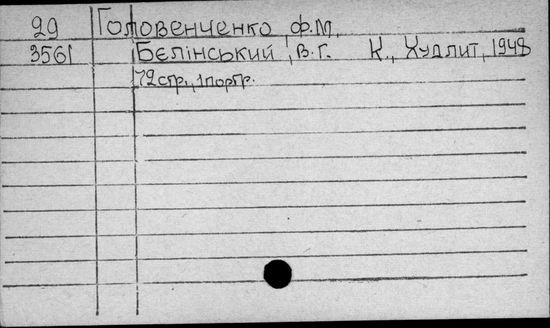 29 Головенченко Ф.М.
3561 Бєлінський, В.Г. К., Худлит, 1948
72стр., 1портр.